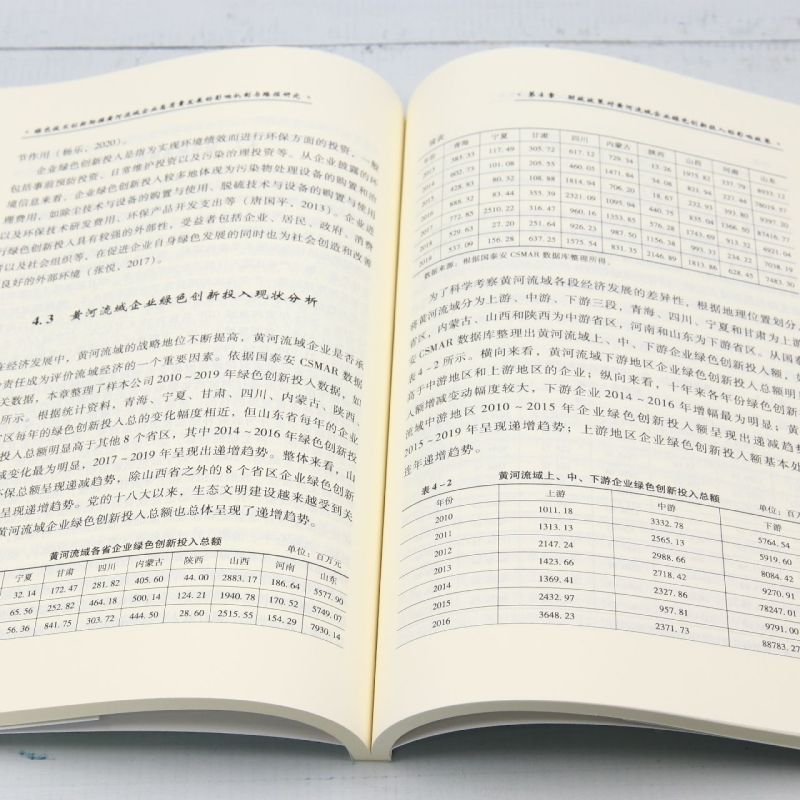 · 绿色技术创新助推黄河流域企业高质量发展的影响机制与路径研究 ·
节作用(杨乐,2020)。
企业绿色创新投入是指为实现环境绩效而进行环保方面的投资,一般
包括事前预防投资、日常维护投资以及污染治理投资等。从企业披露的环
境信息来看,企业绿色创新投入较多地体现为污染物处理设备的购置和治
理费用,如除尘技术与设备的购置与使用、脱硫技术与设备的购置与使用
以及环保技术研发费用、环保产品开发支出等(唐国平,2013)。企业进
行绿色创新投入具有较强的外部性,受益者包括企业、居民、政府、消费
者以及社会组织等,在促进企业自身绿色发展的同时也为社会创造和改善
良好的外部环境(张悦,2017)。
4.3 黄河流域企业绿色创新投入现状分析
在经济发展中,黄河流域的战略地位不断提高,黄河流域企业是否承
责任成为评价流域经济的一个重要因素。依据国泰安 CSMAR 数据
关数据,本章整理了样本公司 2010~2019 年绿色创新投入数据,如
所示。根据统计资料,青海、宁夏、甘肃、四川、内蒙古、陕西、
区每年的绿色创新投入总的变化幅度相近,但山东省每年的企业
入总额明显高于其他 8 个省区,其中 2014~2016 年绿色创新投
减变化最为明显,2017~2019 年呈现出递增趋势。整体来看,山
环保总额呈现递减趋势,除山西省之外的 8 个省区企业绿色创新
呈现递增趋势。党的十八大以来,生态文明建设越来越受到关
黄河流域企业绿色创新投入总额也总体呈现了递增趋势。
黄河流域各省企业绿色创新投入总额 单位:百万元
宁夏 甘肃 四川 内蒙古 陕西 山西 河南 山东
32.14 172.47 281.82 405.60 44.00 2883.17 186.64 5577.90
65.56 252.82 464.18 500.14 124.21 1940.78 170.52 5749.07
56.36 841.75 303.72 444.50 28.60 2515.55 154.29 7930.14
· 第 4 章 财政政策对黄河流域企业绿色创新投入的影响效果 ·
续表
年份 青海 宁夏 甘肃 四川 内蒙古 陕西 山西 河南 山东
2013 385.33 117.49 305.72 617.12 729.34 13.26 1975.82 337.79 8933.12
2014 602.73 101.08 205.55 460.05 1471.84 34.08 821.73 327.56 78019.57
2015 428.83 80.32 108.88 1814.94 706.20 18.67 232.93 393.80 9397.20
2016 888.32 83.44 355.39 2321.09 1095.94 440.75 835.04 1366.50 87416.77
2017 772.85 2510.22 316.47 960.16 1353.85 576.28 1743.69 813.32 6921.04
2018 529.63 27.20 251.64 926.23 987.50 1156.38 993.31 234.22 7038.19
2019 537.09 156.28 637.25 1575.54 831.35 2146.89 1813.86 628.45 7483.30
数据来源:根据国泰安 CSMAR 数据库整理所得。
为了科学考察黄河流域各段经济发展的差异性,根据地理位置划分,
将黄河流域分为上游、中游、下游三段,青海、四川、宁夏和甘肃为上游
省区,内蒙古、山西和陕西为中游省区,河南和山东为下游省区。从国泰
安 CSMAR 数据库整理出黄河流域上、中、下游企业绿色创新投入额,如
表 4-2 所示。横向来看,黄河流域下游地区企业绿色创新投入总额明显
高于中游地区和上游地区的企业;纵向来看,十年来各年份绿色创新
入额增减变动幅度较大,下游企业 2014~2016 年增幅最为明显;黄
流域中游地区 2010~2015 年企业绿色创新投入额呈现出递减趋势
2015~2019 年呈现递增趋势;上游地区企业绿色创新投入额基本处
连年递增趋势。
表 4-2 黄河流域上、中、下游企业绿色创新投入总额 单位:百
年份 上游 中游 下游
2010 1011.18 3332.78 5764.54
2011 1313.13 2565.13 5919.60
2012 2147.24 2988.66 8084.42
2013 1423.66 2718.42 9270.91
2014 1369.41 2327.86 78247.01
2015 2432.97 957.81 9791.00
2016 3648.23 2371.73 88783.27